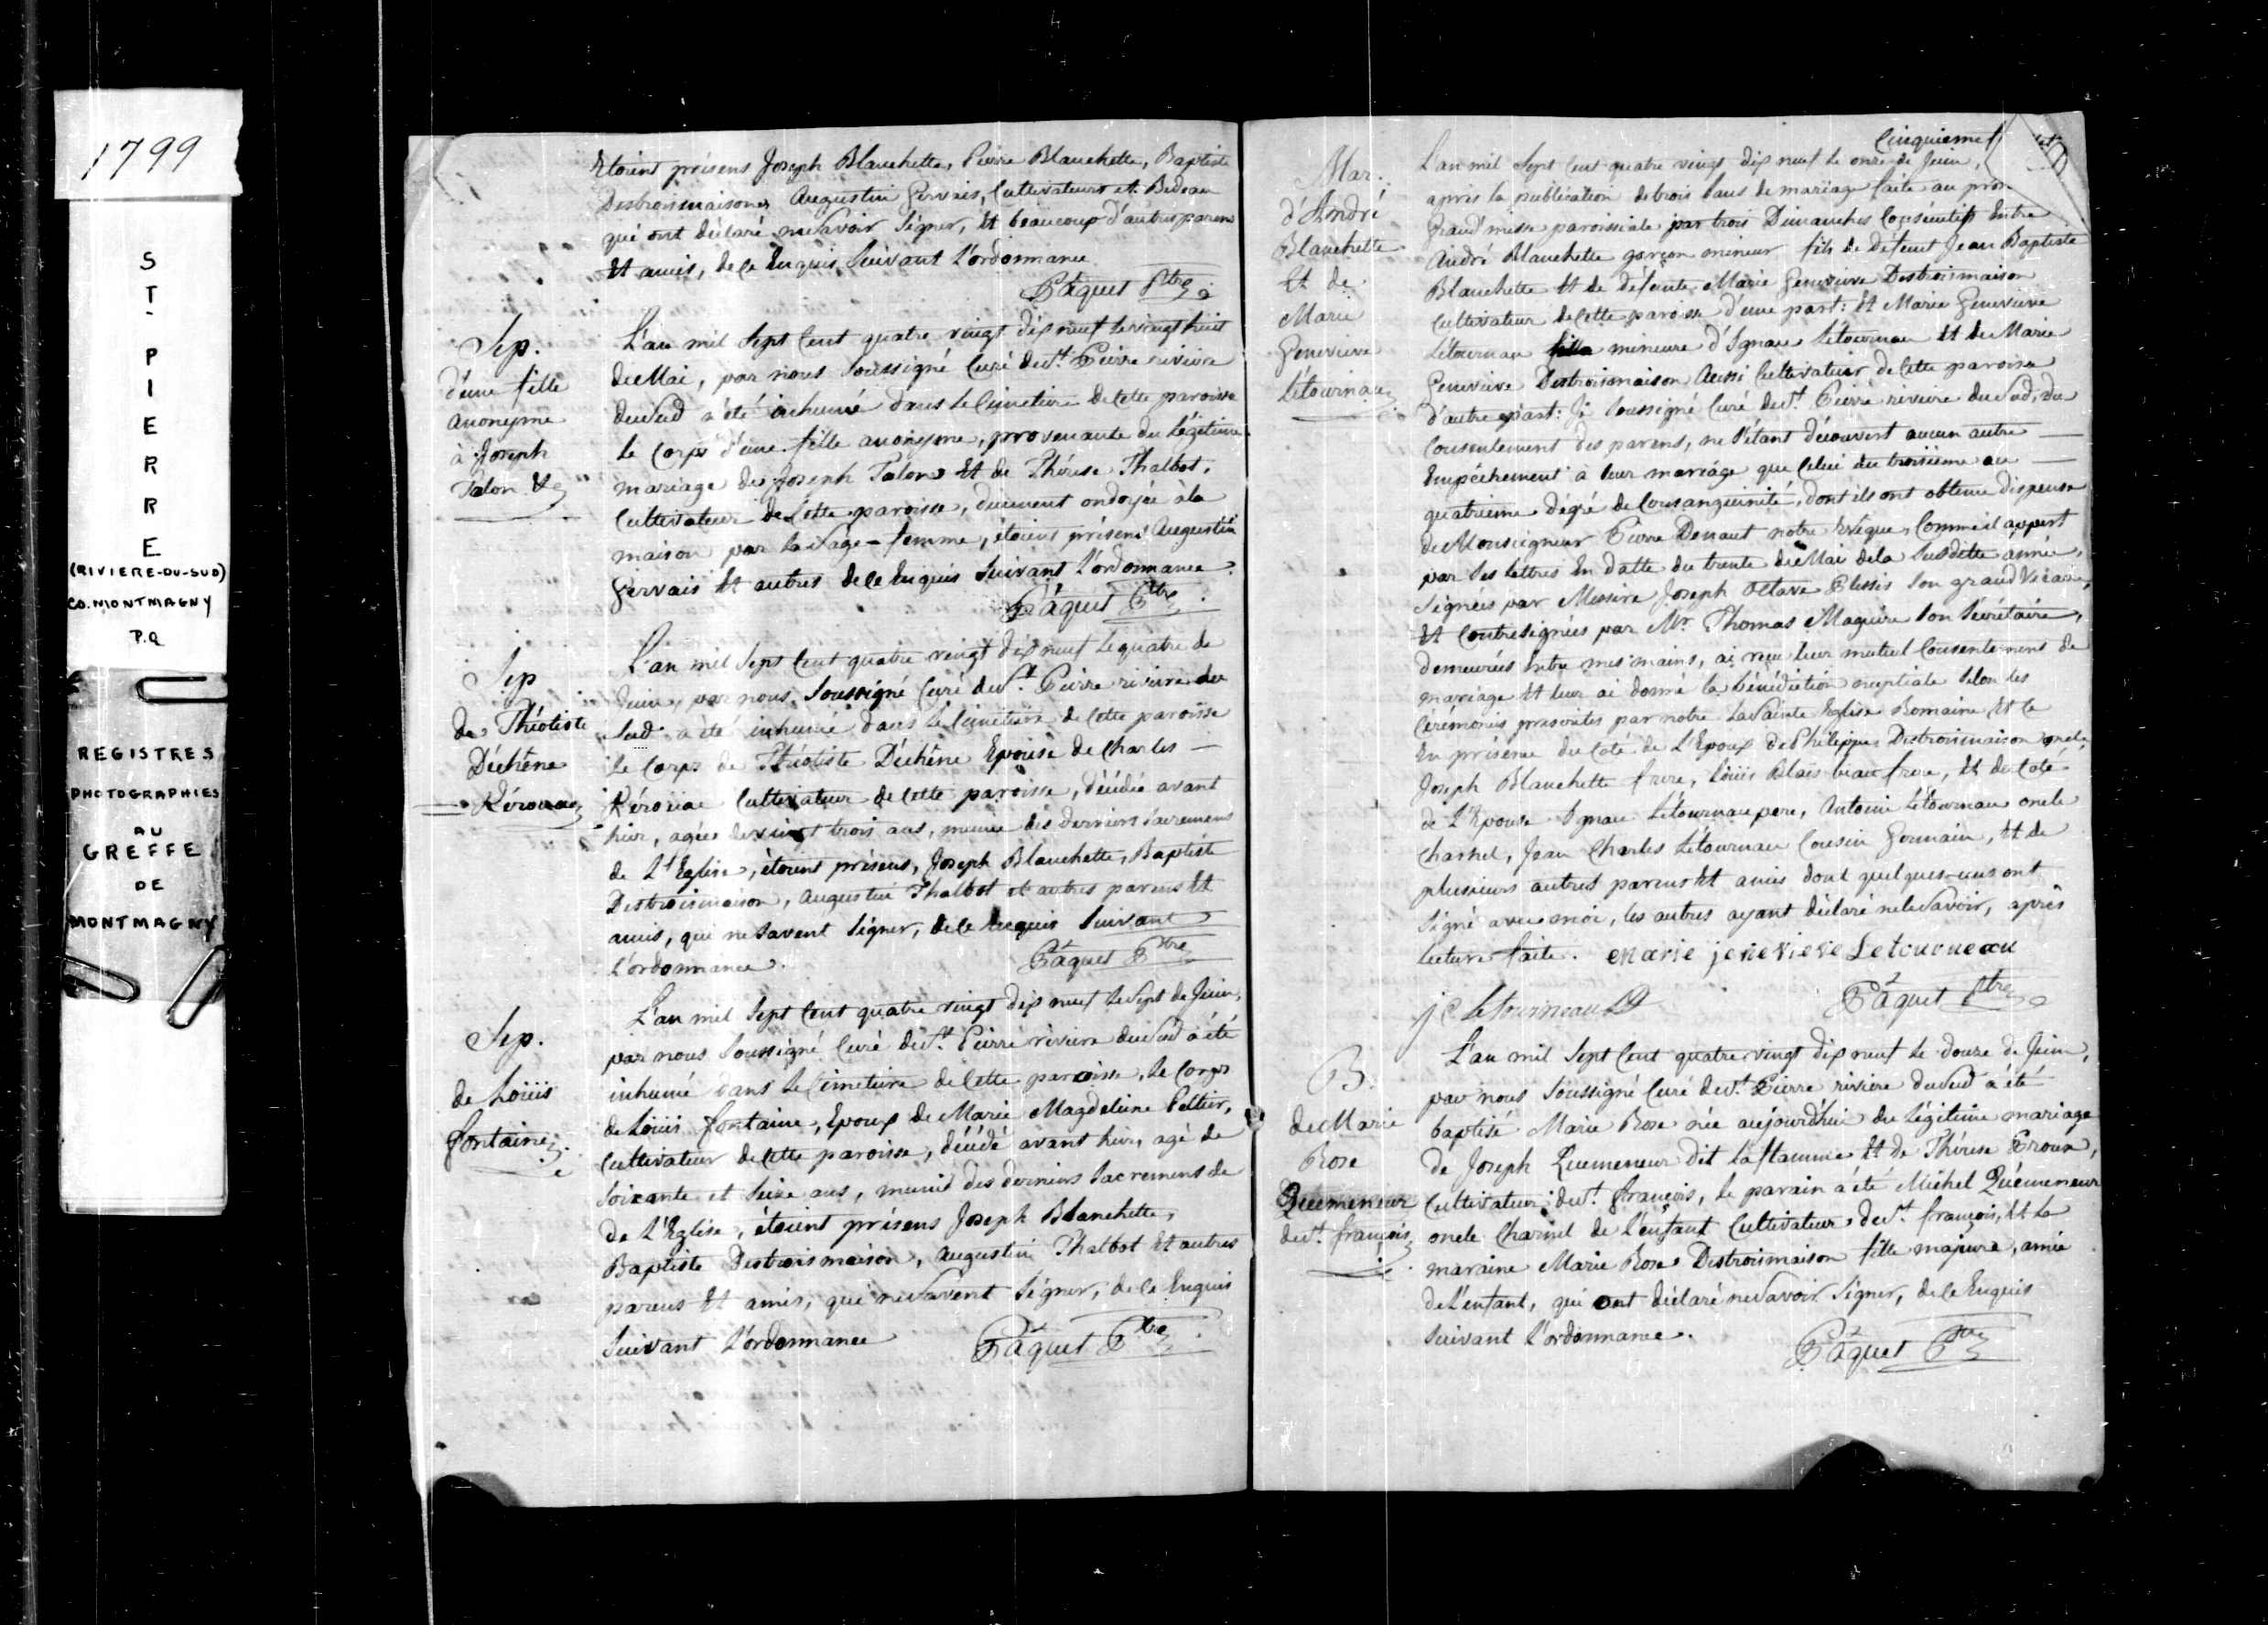 1799
ST-PIERRE
(RIVIERE-DU-SUD)
CO. MONTMAGNY
P.Q
REGISTRES
PHOTOGRAPHIES
AU
GREFFE
DE
MONTMAGNY
Etoient présens Joseph Blanchette, Pierre Blanchette, Baptiste
Destroismaisons, Augustin Gervais, Cultivateurs et Bedeau
qui ont déclaré ne savoir signer, Et beaucoup d'autres parens
Et amis, de ce Enquis Suivant L'ordonnance
Pâquet Ptre
Sep.
d'une fille
anonyme
à Joseph
Talon &
L'an mil Sept Cent quatre vingt dix neuf le vingt huit
de Mai, par nous Soussigné Curé de St. Pierre riviere
du Sud a été inhumé dans le Cimetiere de Cette paroisse
le Corps d'une fille anonyme, provenante du Légitime
mariage de Joseph Talon Et de Thérese Thalbot,
Cultivateur de Cette paroisse, duement ondoyée à la
maison par la Sage-femme, étoient présens Augustin
Gervais Et autres de ce Enquis Suivant L'ordonnance.
Pâquet Ptre
Sep
de Théotiste
Déchêne
Kérouac
L'an mil Sept Cent quatre vingt dix neuf le quatre de
Juin, par nous Soussigné Curé de St. Pierre riviere du
Sud a été inhumée dans le Cimetiere de Cette paroisse
Le Corps de Théotiste Déchêne Epouse de Charles —
Kérouac Cultivateur de Cette paroisse, décédée avant
hier, agée de vingt trois ans, munie des derniers Sacremens
de L'Eglise, étoient présens, Joseph Blanchette, Baptiste
Destroismaison, Augustin Thalbot et autres parens Et
amis, qui ne Savent Signer, de ce Enquis Suivant
L'ordonnance.
Pâquet Ptre
Sep.
de Loüis
fontaine
L'an mil Sept Cent quatre vingt dix neuf le Sept de Juin,
par nous Soussigné Curé de St. Pierre riviere du Sud a été
inhumé dans le Cimetiere de Cette paroisse, le Corps
de Loüis fontaine, Epoux de Marie Magdeleine Peltier,
Cultivateur de Cette paroisse, décédé avant hier, agé de
Soixante et Seize ans, munis des derniers Sacremens de
de L'Eglise, étoient présens Joseph Blanchette,
Baptiste Destroismaison, Augustin Thalbot Et autres
parens Et amis, qui ne Savent Signer, de ce Enquis
Suivant L'ordonnance
Pâquet Ptre
Cinquieme
Mar.
d'André
Blanchette
Et de
Marie
Genevieve
Létournau
L'an mil Sept Cent quatre vingt dix neuf le onze de Juin,
après la publication de trois bans de mariage faite au pros-
Grand messe paroissiale par trois Dimanches Consécutifs Entre
André Blanchette garçon mineur fils de défunt Jean Baptiste
Blanchette Et de défunte Marie Genevieve Destroismaison
Cultivateur de Cette paroisse d'une part: Et Marie Genevieve
Létournau fille mineure d'Ignace Létournau Et de Marie
Genevieve Destroismaison Aussi Cultivateur de Cette paroisse
d'autre part: Je Soussigné Curé de St. Pierre riviere du Sud, du
Consentement des parens, ne s'étant découvert aucun autre —
Empêchement à leur mariage que Celui du troisieme au —
quatrieme dégré de Consanguinité, dont ils ont obtenu dispense
de Monseigneur Pierre Denaut notre Evêque, Comme il appert
par Ses Lettres En datte du trente de Mai de la Susditte année,
Signées par Messire Joseph Octave Plessis Son grand Vicaire,
Et Contresignées par Mr. Thomas Maguire Son Sécrétaire,
demeurées Entre mes mains, ai reçu leur mutuel Consentement de
mariage Et leur ai donné la bénédiction nuptiale Selon les
Cérémonies prescrites par notre La Sainte Eglise Romaine Et Ce
En présence du Coté de L'Epoux de Philippe Destroismaison oncle,
Joseph Blanchette frere, Loüis Blais beau frere, Et du Coté
de L'Epouse Ignace Létournau pere, Antoine Létournau oncle
Charnel, Jean Charles Létournau Cousin Germain, Et de
plusieurs autres parens Et amis dont quelques-uns ont
Signé avec moi, les autres ayant déclaré ne le Savoir, après
Lecture faite. Marie jenevieve Letourneau
jc Letourneau
Pâquet Ptre
B.
de Marie
Rose
Quemeneur
de St. françois
L'an mil Sept Cent quatre vingt dix neuf le douze de Juin,
par nous Soussigné Curé de St. Pierre riviere du Sud a été
baptisé Marie Rose née aujourd'hui du Légitime mariage
de Joseph Quemeneur Dit Laflamme Et de Thérese Proux,
Cultivateur de St. françois, le parain a été Michel Quémeneur
oncle Charnel de L'enfant Cultivateur de St. françois, Et la
maraine Marie Rose Destroismaison fille majeure, amie
de L'enfant, qui ont déclaré ne Savoir Signer, de ce Enquis
Suivant L'ordonnance.
Pâquet Ptre